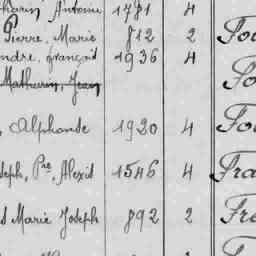 Antoine 1781 4
Pierre, Marie 812 2
François 1936 4
Mathurin, Jean
Alphonse 1920 4
Joseph, Pre, Alexis 1546 4 Fra
Marie Joseph 892 2